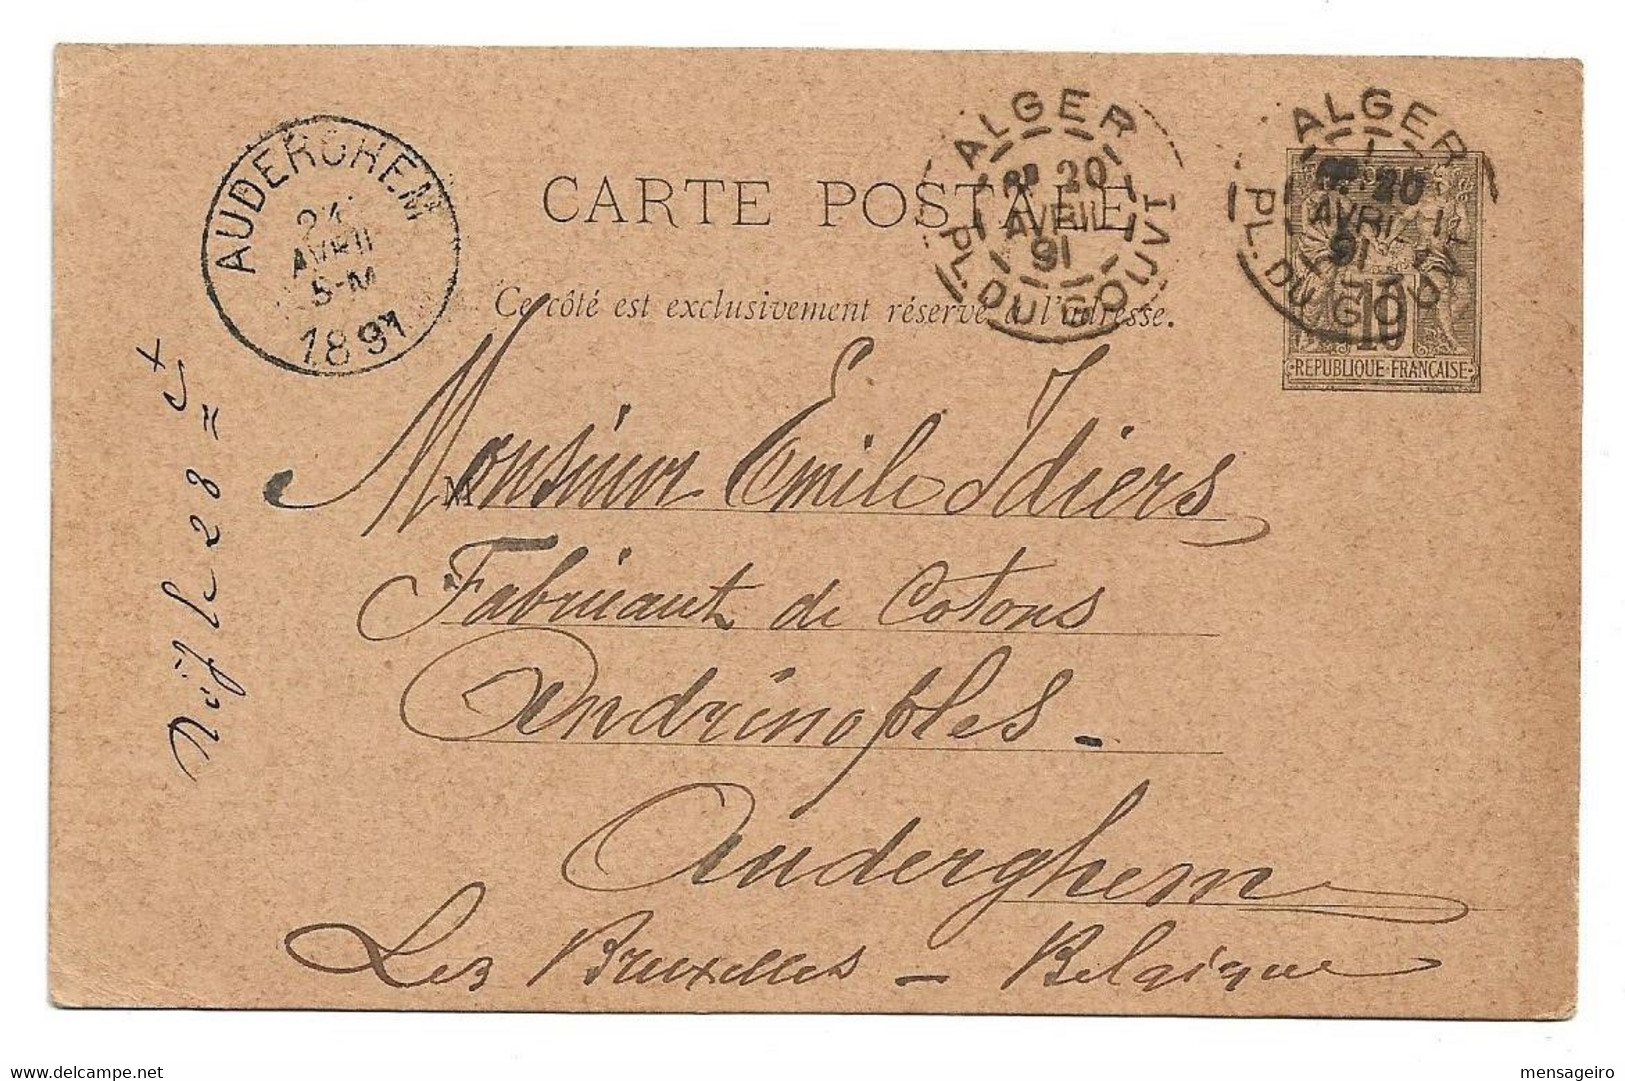 AUDERGHEM
AVRIL
5-M
1891
ALGER
20
AVRIL
91
PL. DU GOUVT
ALGER
20
AVRIL
91
PL. DU GOUVT
CARTE POSTALE
Ce côté est exclusivement réservé à l'adresse.
10
REPUBLIQUE FRANCAISE
M
Monsieur Emile Idiers
Fabricant de Cotons
Andrinoples -
Auderghem
Lez Bruxelles - Belgique
le 28 =
mensageiro
www.delcampe.net